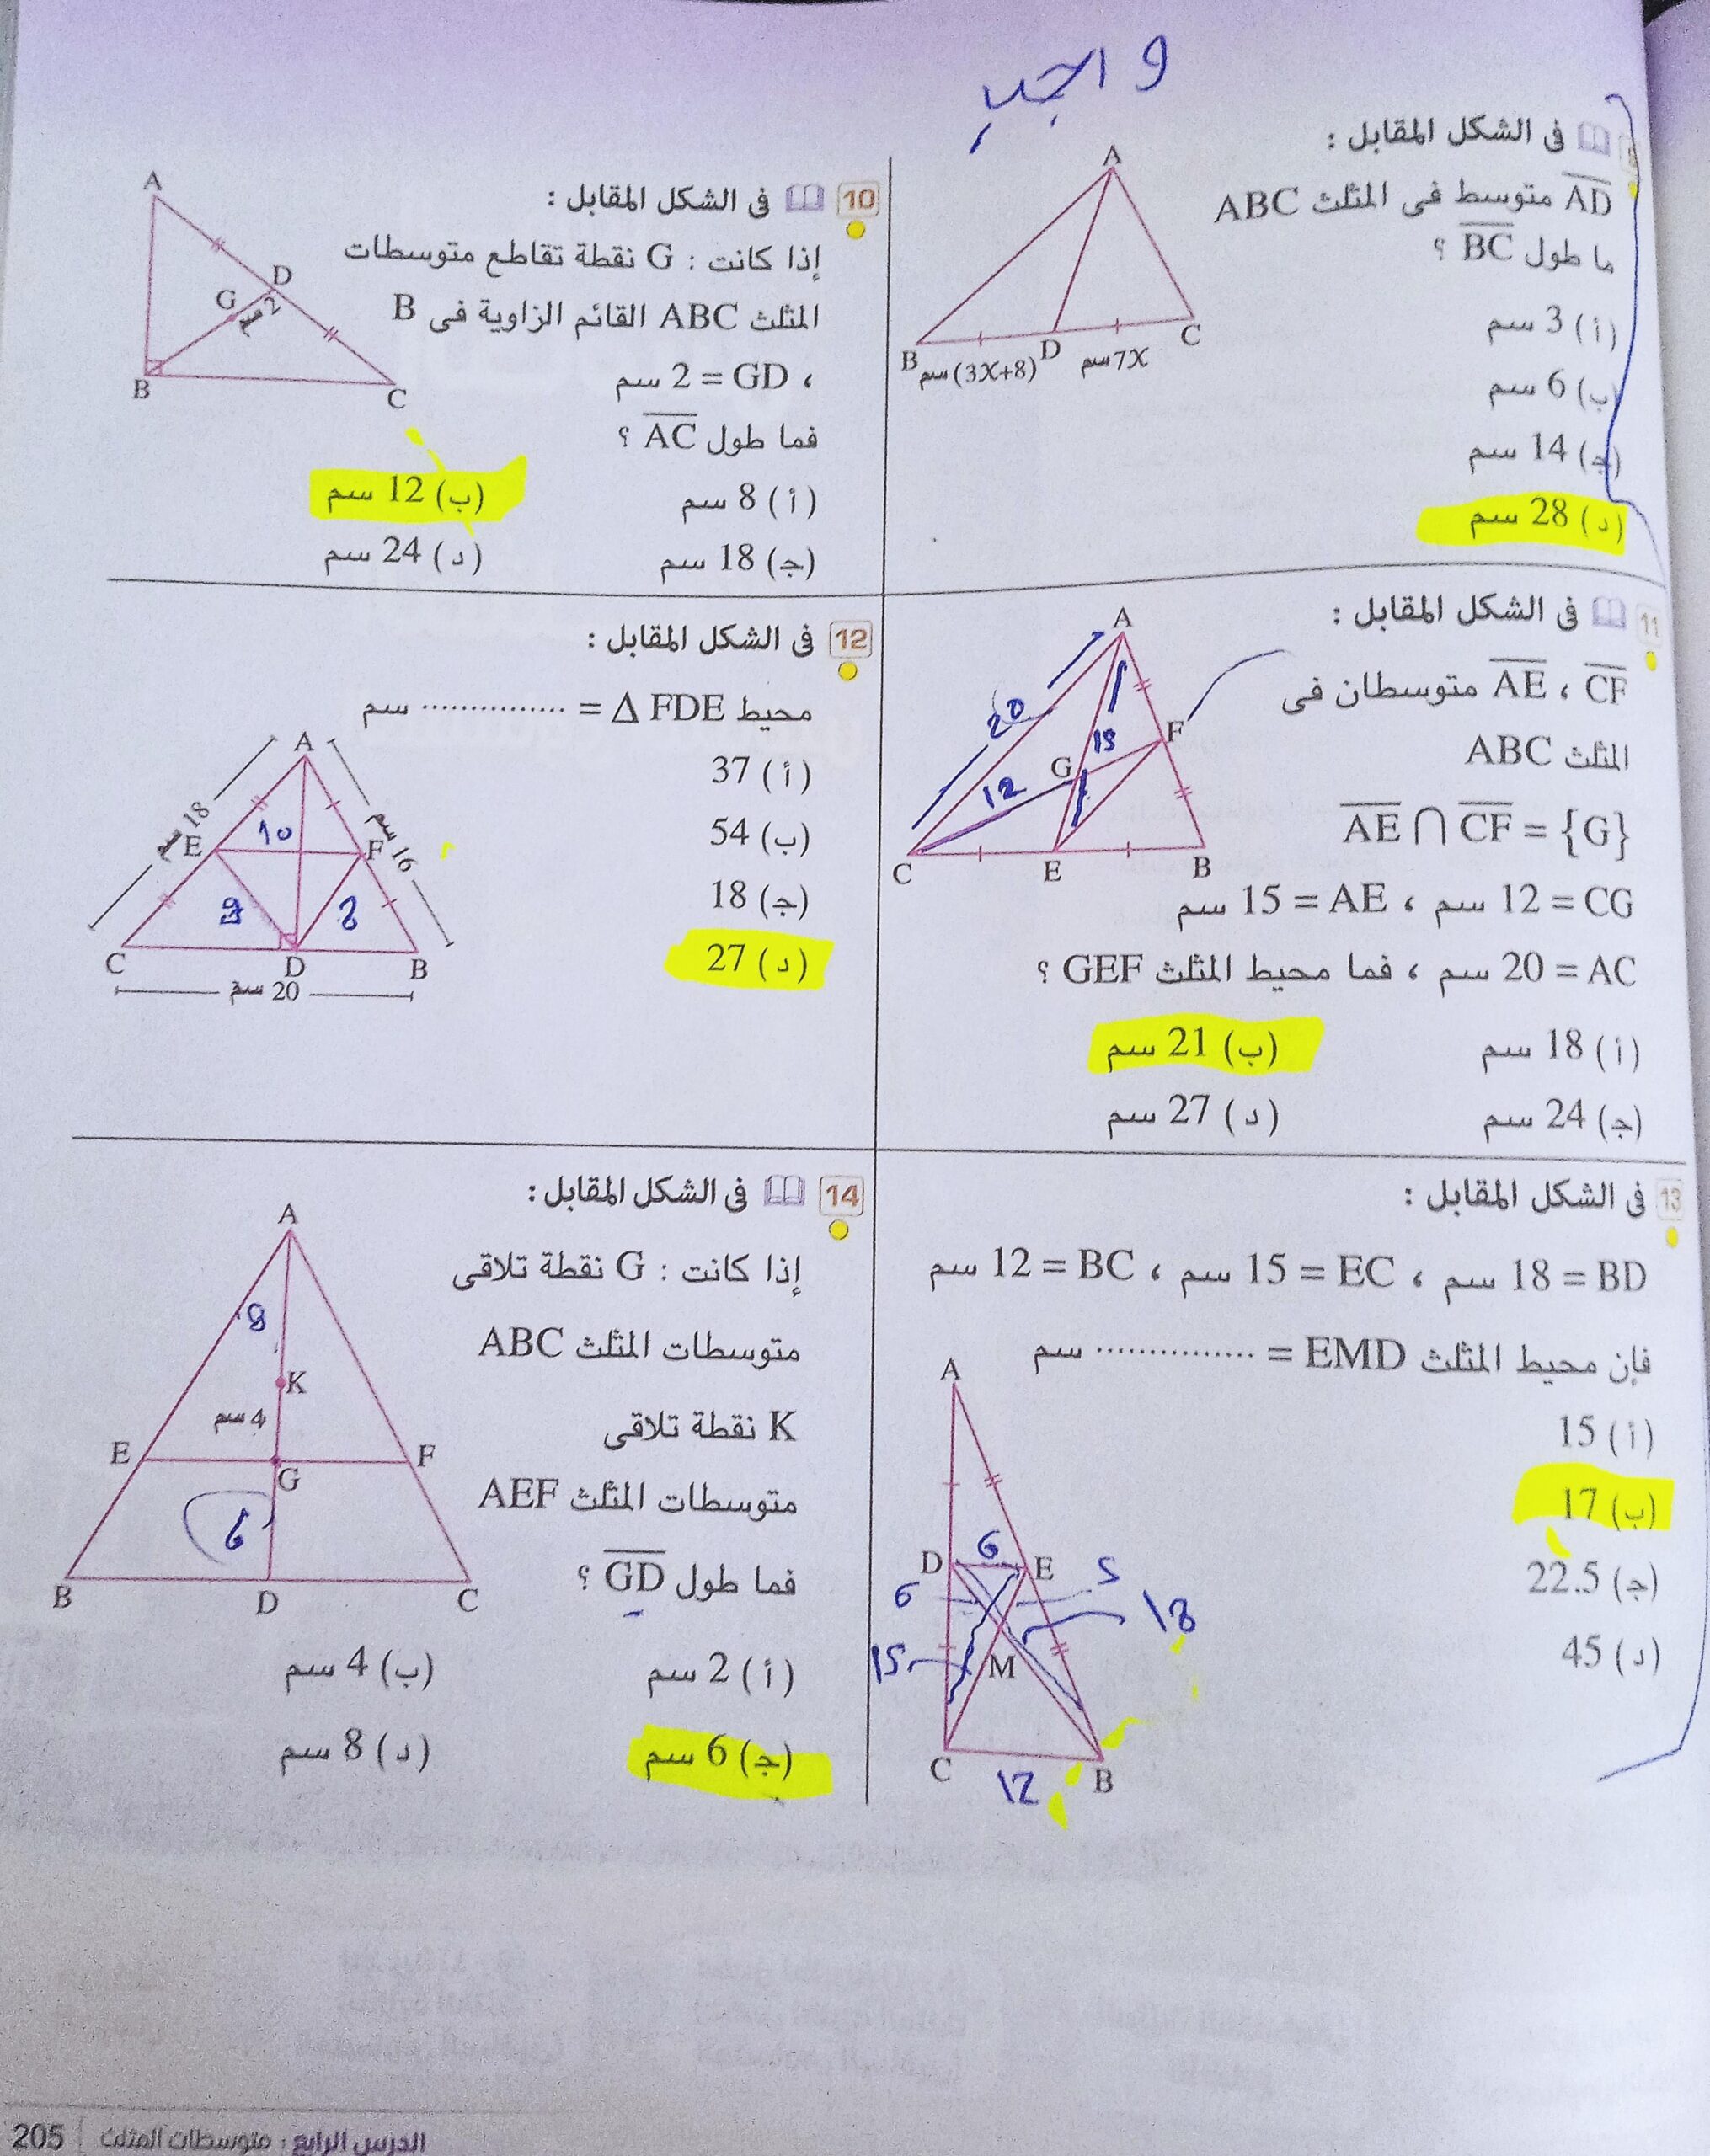 واجب
في الشكل المقابل :
AD متوسط في المثلث ABC
ما طول BC ؟
(أ) 3 سم
(ب) 6 سم
(جـ) 14 سم
(د) 28 سم
A
B
D
C
(3X+8) سم
7X سم
10 في الشكل المقابل :
إذا كانت : G نقطة تقاطع متوسطات
المثلث ABC القائم الزاوية في B
، GD = 2 سم
فما طول AC ؟
(أ) 8 سم
(ب) 12 سم
(جـ) 18 سم
(د) 24 سم
A
D
G
2 سم
B
C
11 في الشكل المقابل :
AE ، CF متوسطان في
المثلث ABC
AE ∩ CF = {G}
CG = 12 سم ، AE = 15 سم
AC = 20 سم ، فما محيط المثلث GEF ؟
(أ) 18 سم
(ب) 21 سم
(جـ) 24 سم
(د) 27 سم
A
20
F
15
G
12
C
E
B
12 في الشكل المقابل :
محيط Δ FDE = ............... سم
(أ) 37
(ب) 54
(جـ) 18
(د) 27
A
18 سم
16 سم
E
10
F
9
8
C
D
B
20 سم
13 في الشكل المقابل :
BD = 18 سم ، EC = 15 سم ، BC = 12 سم
فإن محيط المثلث EMD = ............... سم
(أ) 15
(ب) 17
(جـ) 22.5
(د) 45
A
D
6
E
5
6
18
15
M
C
12
B
14 في الشكل المقابل :
إذا كانت : G نقطة تلاقى
متوسطات المثلث ABC
K نقطة تلاقى
متوسطات المثلث AEF
فما طول GD ؟
(أ) 2 سم
(ب) 4 سم
(جـ) 6 سم
(د) 8 سم
A
8
K
4 سم
E
F
G
6
B
D
C
الدرس الرابع : متوسطات المثلث
205